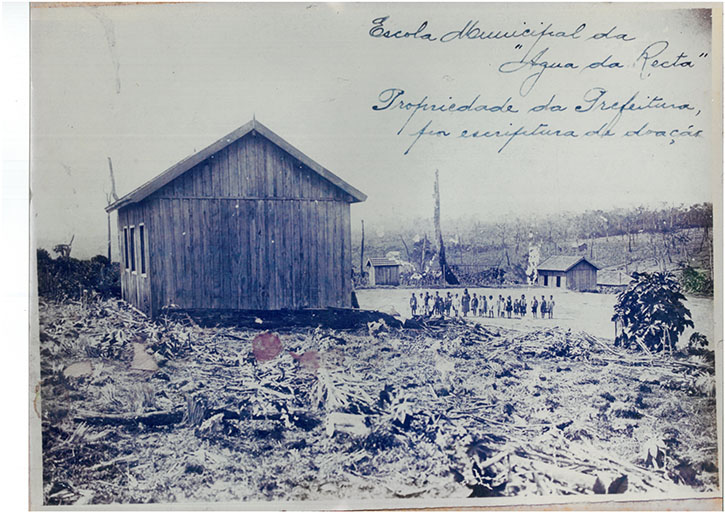 Escola Municipal da
"Agua da Recta"
Propriedade da Prefeitura,
por escriptura de doação